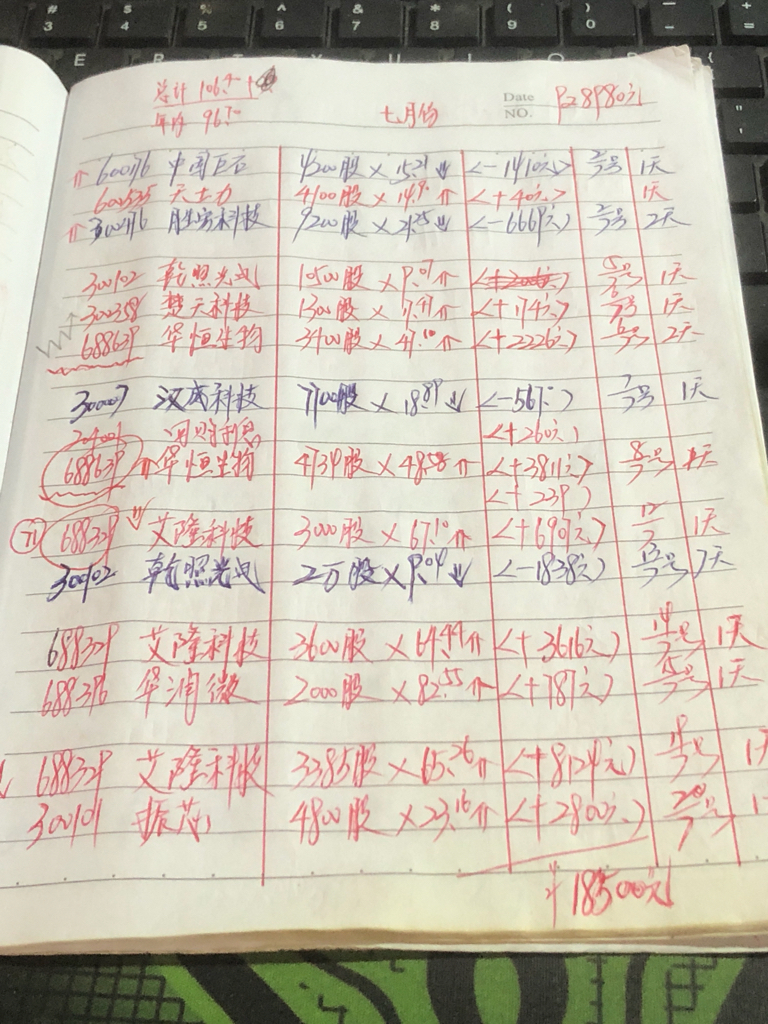 # 3 $ 4 % 5 ^ 6 & 7 * 8 ( 9 ) 0 - + =
E R T Y U I O P {
总计 106.
年内 96.
七月份
Date
NO.
600176 中国巨石 4200股 × 15.21 ↓ <-1410元> 2/7号 1天
600535 天士力 4100股 × 14.9 ↑ <+40元> 1天
300476 胜宏科技 9200股 × <-6669元> 2天
300102 乾照光电 10500股 × 9.07 ↑ 5/7号 1天
300358 楚天科技 1300股 × <+174元> 1天
688639 华恒生物 3400股 × <+2226元> 2天
汉威科技 7700股 × 18.89 ↓ <-567元> 7/7号 1天
204001 回购利息 <+260元>
688639 华恒生物 4739股 × 48.58 ↑ <+3811元> 8/7号
<+239>
688329 艾隆科技 3000股 × 67.10 ↑ <+6907元> 12/7 1天
300102 乾照光电 2万股 × 9.04 ↓ <-1838元> 13/7号
688329 艾隆科技 3600股 × 64.44 ↑ <+3616元> 14/7号 1天
688396 华润微 2000股 × 82.55 ↑ <+787元> 15/7号 1天
688329 艾隆科技 3385股 × 65.26 ↑ <+8124元> 1天
300101 振芯 4800股 × 23.16 ↑ <+2800元> 20/7号
+18500元